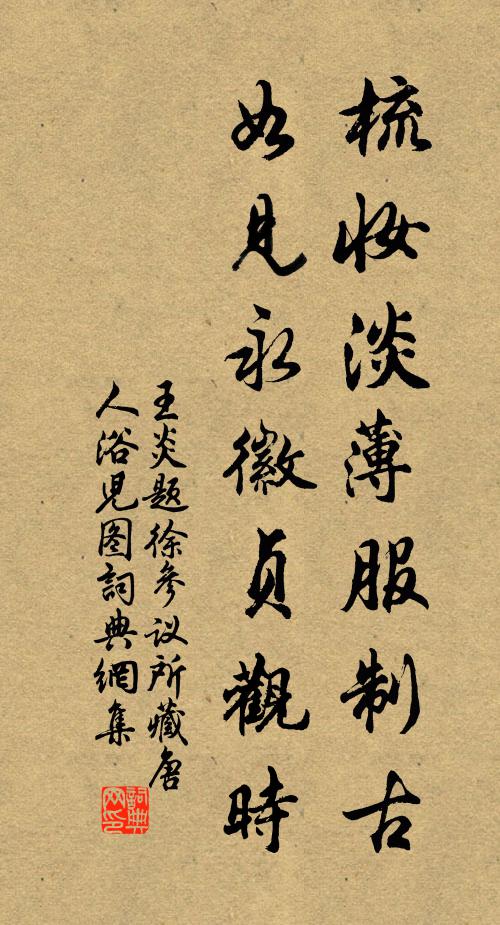 梳妆淡薄服制古
如见永徽贞觀時
王炎题徐參议所藏唐
人浴児图詞典網集
詞典
网印